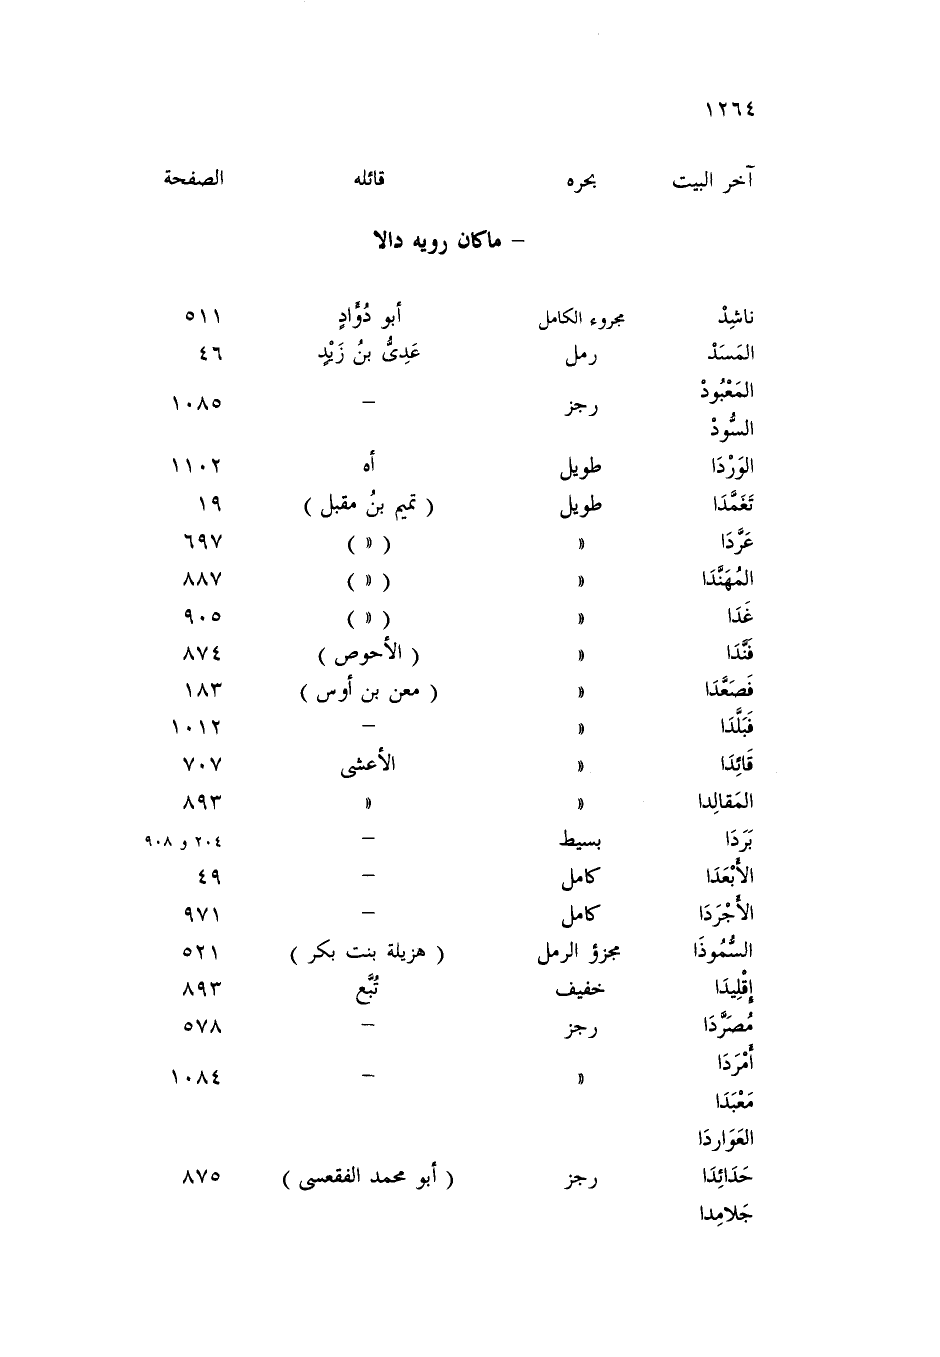 ١٢٦٤
آخر البيت بحره قائله الصفحة
– ماكان رويه دالا
ناشِدْ مجروء الكامل أبو دُؤَادٍ ٥١١
المَسَدْ رمل عَدِىُّ بنُ زَيْدٍ ٤٦
المَعْبُودْ
رجز – ١٠٨٥
السُّودْ
الوَرْدَا طويل أه ١١٠٢
تَغَمَّدَا طويل ( تميم بنُ مقبل ) ١٩
عَرَّدَا » ( » ) ٦٩٧
المُهَنَّدَا » ( » ) ٨٨٧
غَدَا » ( » ) ٩٠٥
فَنَّدَا » ( الأحوص ) ٨٧٤
فَصَعَّدَا » ( معن بن أوس ) ١٨٣
فَبَلَّدَا » – ١٠١٢
قَائِدَا » الأعشى ٧٠٧
المَقالِدا » » ٨٩٣
بَرَدَا بسيط – ٢٠٤ و ٩٠٨
الأَبْعَدَا كامل – ٤٩
الأَجْرَدَا كامل – ٩٧١
السُّمُودَا مجزؤ الرمل ( هزيلة بنت بكر ) ٥٢١
إِقْلِيدَا خفيف تُبَّع ٨٩٣
مُصَرَّدَا رجز – ٥٧٨
أَمْرَدَا
» – ١٠٨٤
مَعْبَدَا
العَوَاردَا
حَدَائِدَا رجز ( أبو محمد الفقعسى ) ٨٧٥
جَلامِدا